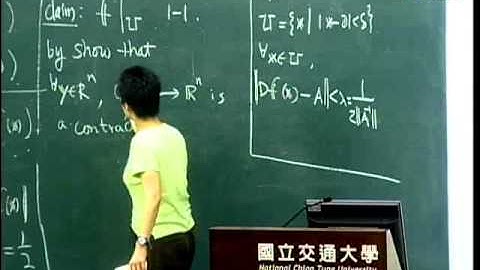 claim: f|_U 1-1.
by show that
∀y∈R^n, → R^n is
a contrac
U={x| |x-a|<δ}
∀x∈U,
||Df(x)-A||<λ=1/(2||A^{-1}||)
(x)||
=1/2
國立交通大學
National Chiao Tung University